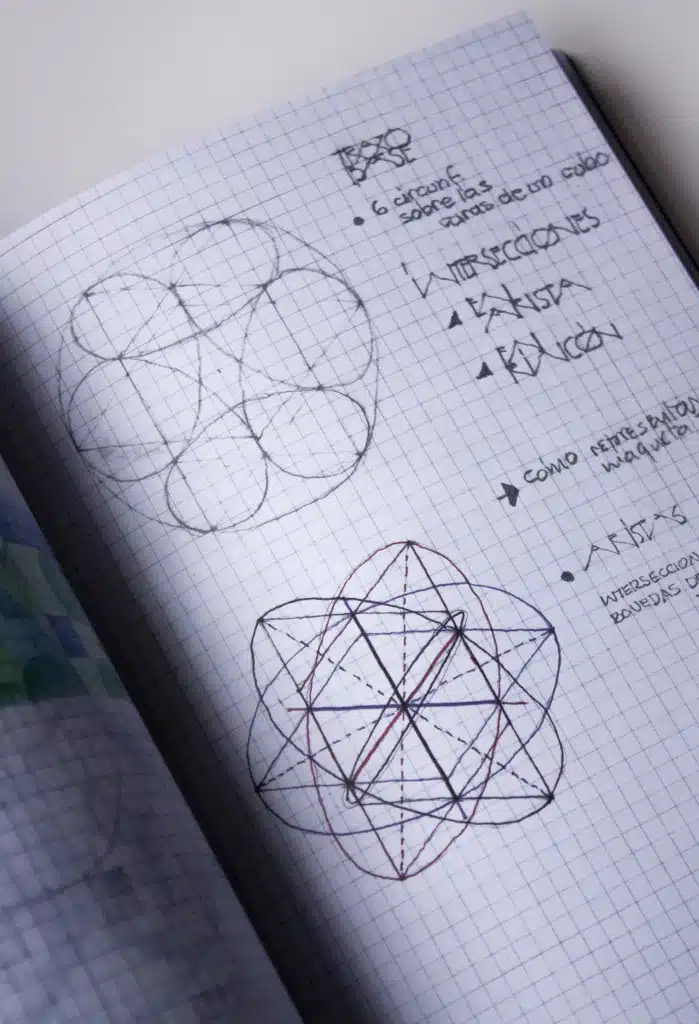 TRAZO
BASE
• 6 circunf.
sobre las
caras de un cubo
INTERSECCIONES
ARISTA
→ como representar
maqueta
• ARISTAS
INTERSECCION
BOVEDAS DE